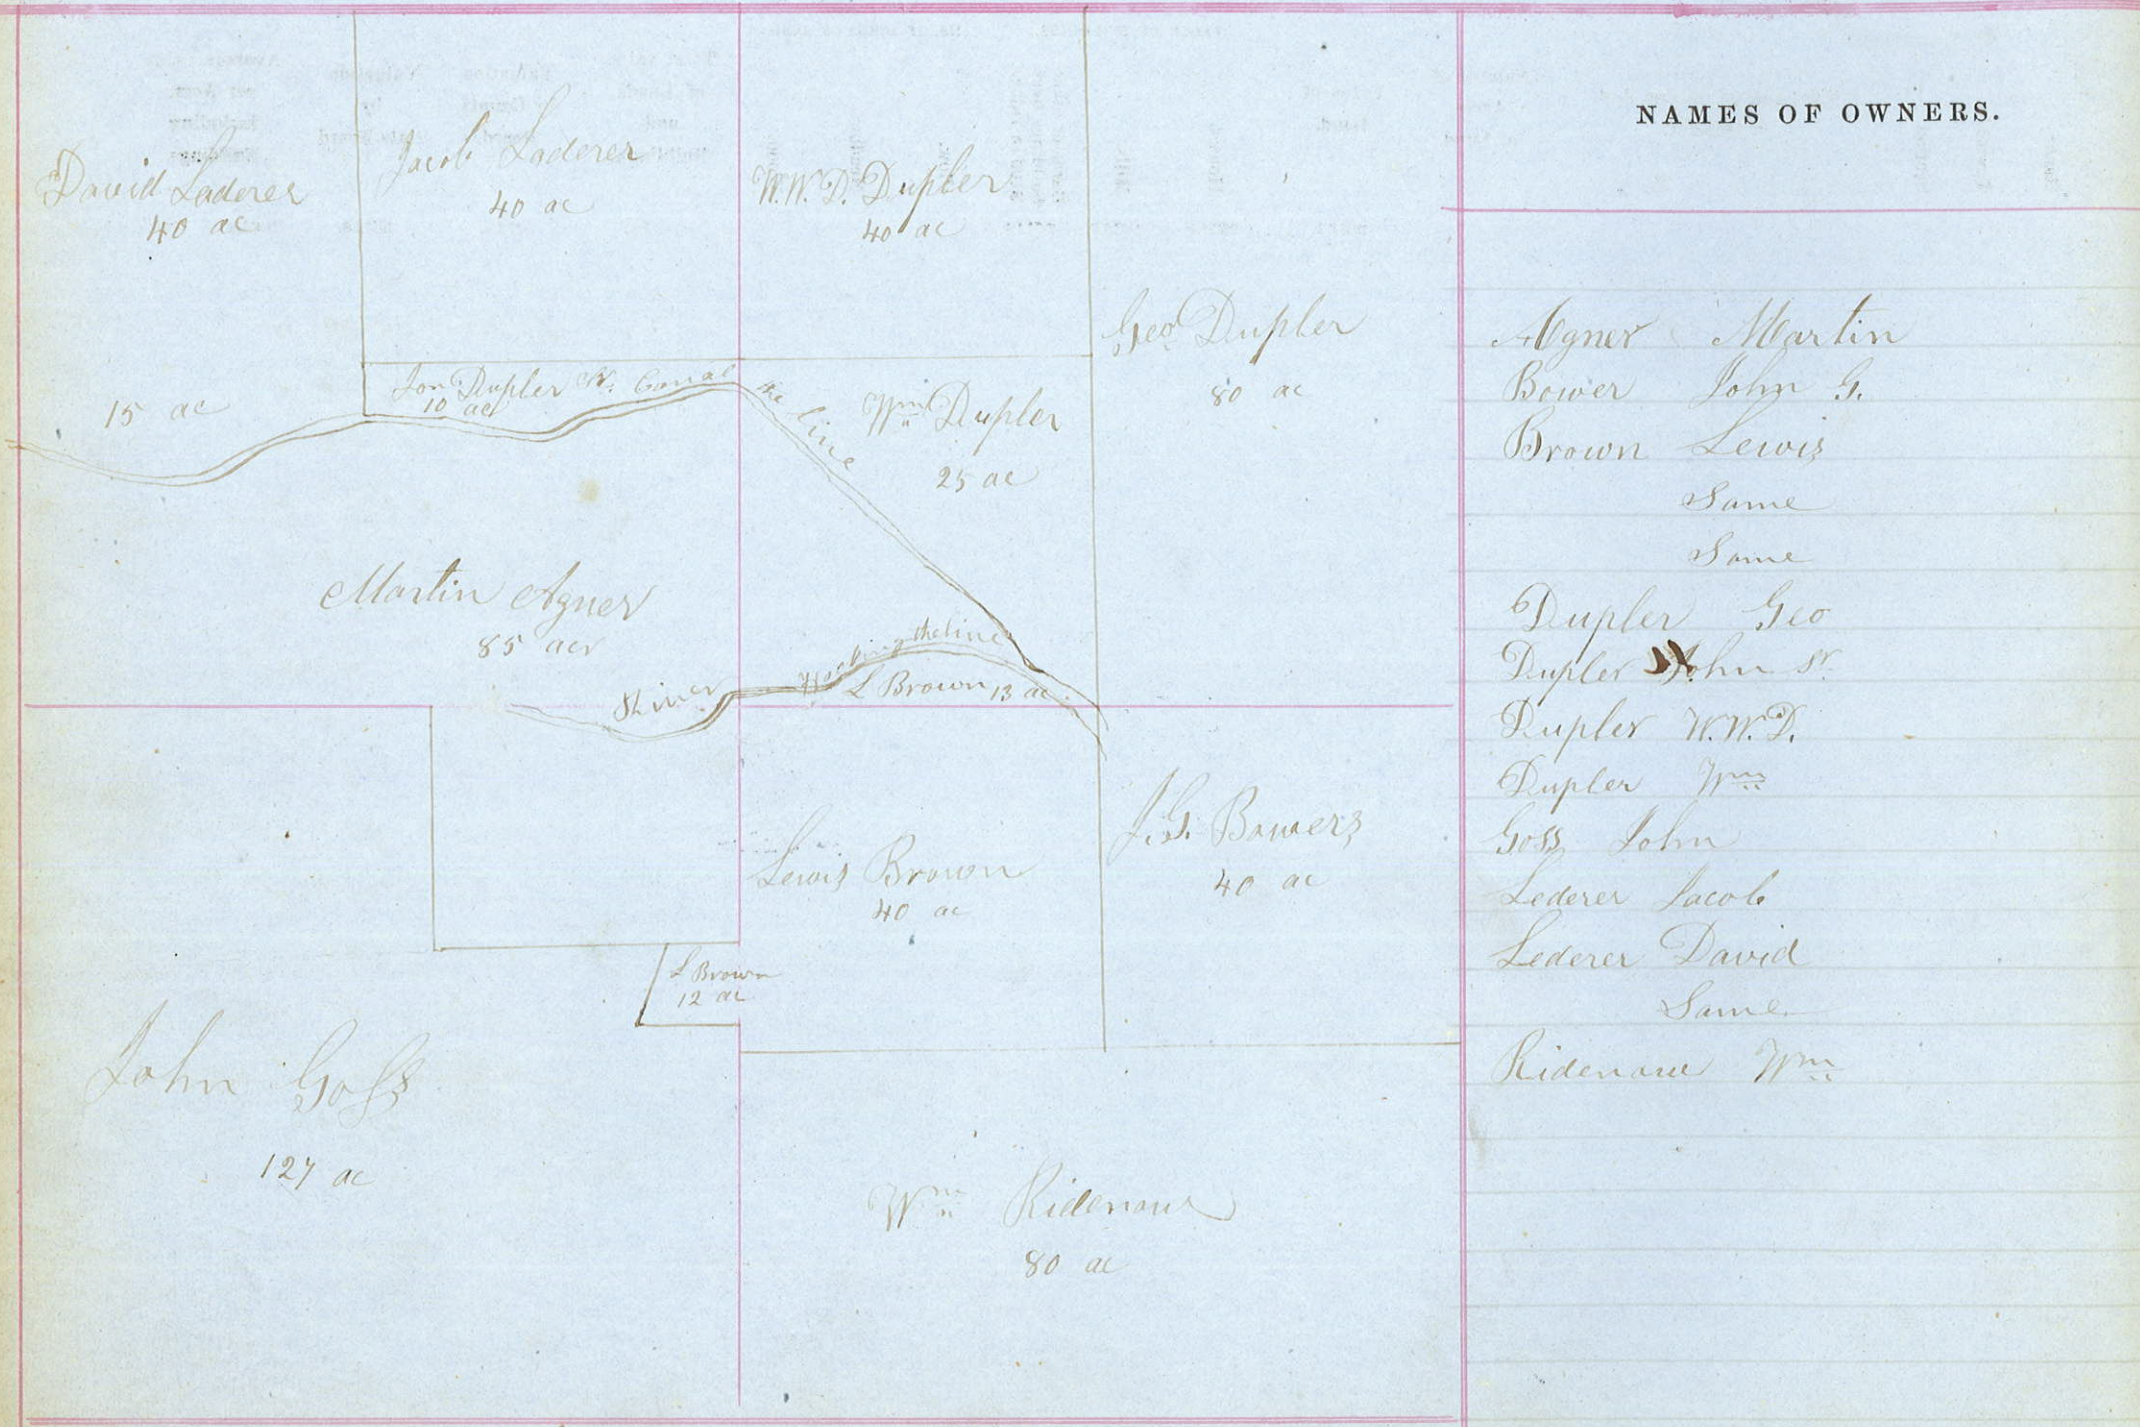 David Laderer
40 ac
Jacob Laderer
40 ac
W.W.D. Dupler
40 ac
Geo Dupler
80 ac
15 ac
Jon Dupler Sr. Canal the line
10 ac
Wm Dupler
25 ac
Martin Agner
85 acr
River Hocking the line
L Brown 13 ac
Lewis Brown
40 ac
J.G. Bowers
40 ac
L Brown
12 ac
John Goss
127 ac
Wm Ridenour
80 ac
NAMES OF OWNERS.
Agner Martin
Bower John G.
Brown Lewis
Same
Same
Dupler Geo
Dupler John Sr.
Dupler W.W.D.
Dupler Wm
Goss John
Lederer Jacob
Lederer David
Same
Ridenour Wm